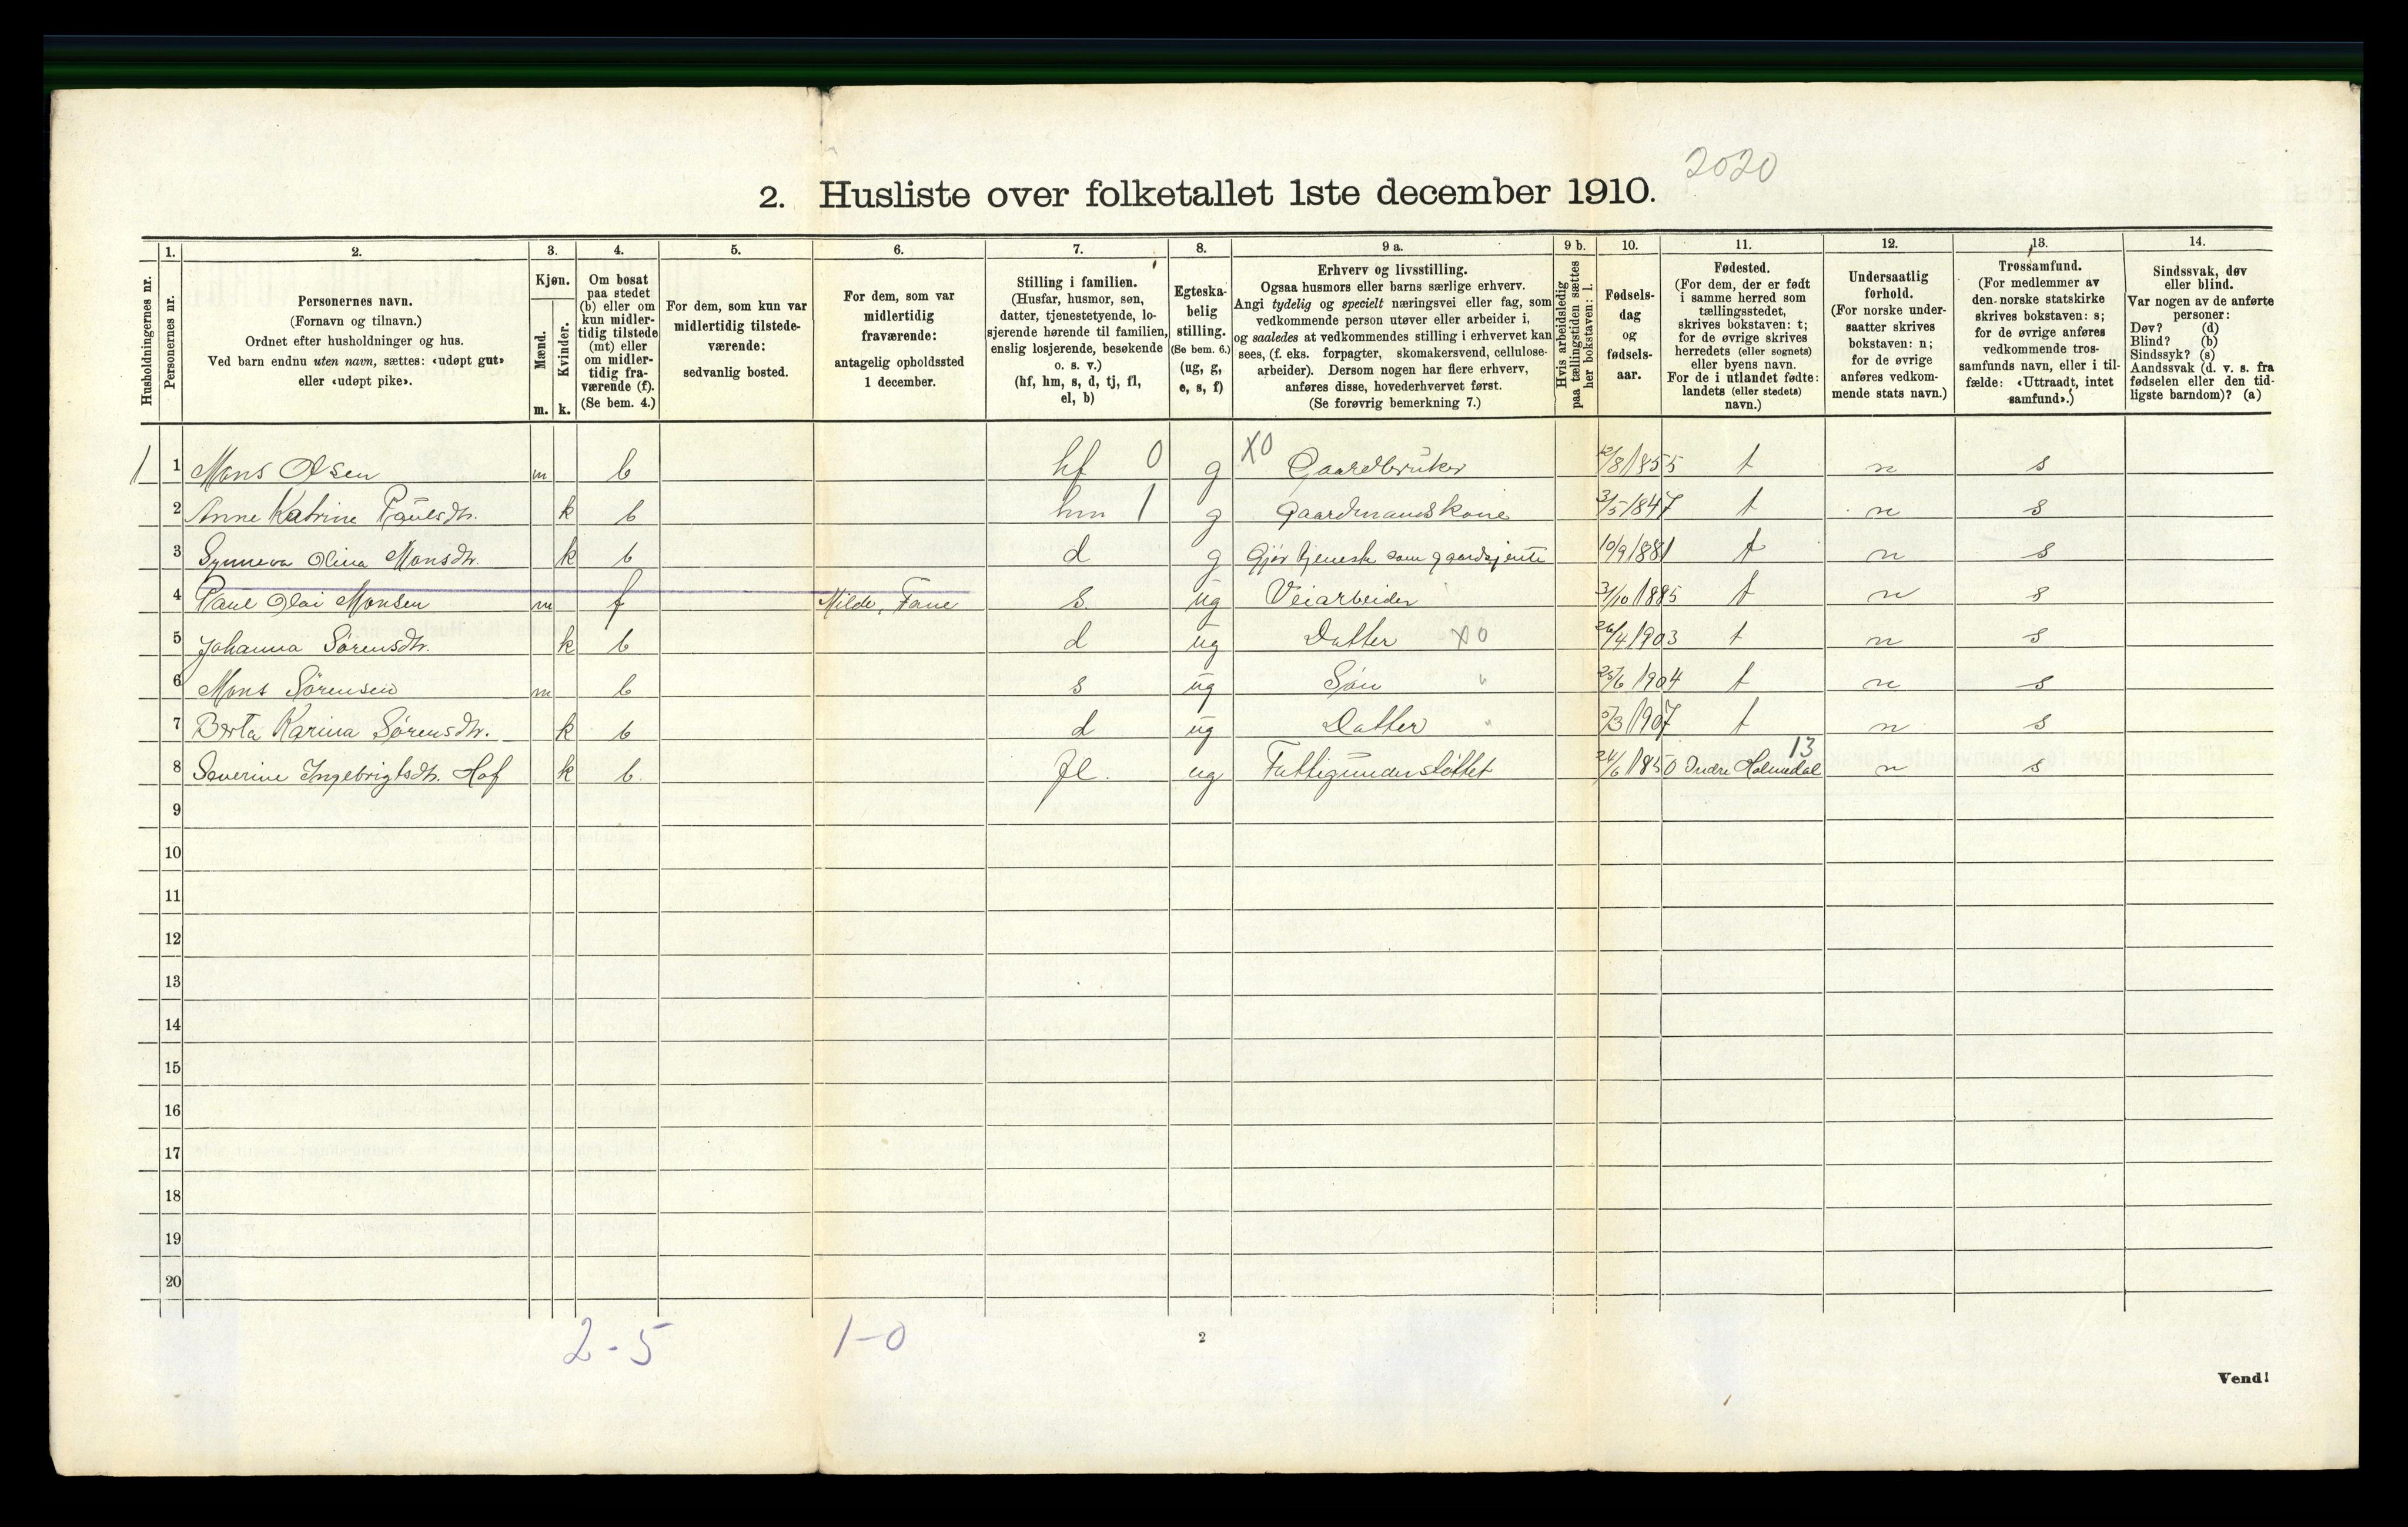 2020
2. Husliste over folketallet 1ste december 1910.
Husholdningernes nr.
1.
Personernes nr.
2.
Personernes navn.
(Fornavn og tilnavn.)
Ordnet efter husholdninger og hus.
Ved barn endnu uten navn, sættes: «udøpt gut»
eller «udøpt pike».
3.
Kjøn.
Mænd.
m.
Kvinder.
k.
4.
Om bosat
paa stedet
(b) eller om
kun midler-
tidig tilstede
(mt) eller
om midler-
tidig fra-
værende (f).
(Se bem. 4.)
5.
For dem, som kun var
midlertidig tilstede-
værende:
sedvanlig bosted.
6.
For dem, som var
midlertidig
fraværende:
antagelig opholdssted
1 december.
7.
Stilling i familien.
(Husfar, husmor, søn,
datter, tjenestetyende, lo-
sjerende hørende til familien,
enslig losjerende, besøkende
o. s. v.)
(hf, hm, s, d, tj, fl,
el, b)
8.
Egteska-
belig
stilling.
(Se bem. 6.)
(ug, g,
e, s, f)
9 a.
Erhverv og livsstilling.
Ogsaa husmors eller barns særlige erhverv.
Angi tydelig og specielt næringsvei eller fag, som
vedkommende person utøver eller arbeider i,
og saaledes at vedkommendes stilling i erhvervet kan
sees, (f. eks. forpagter, skomakersvend, cellulose-
arbeider). Dersom nogen har flere erhverv,
anføres disse, hovederhvervet først.
(Se forøvrig bemerkning 7.)
9 b.
Hvis arbeidsledig
paa tællingstiden sættes
her bokstaven: l.
10.
Fødsels-
dag
og
fødsels-
aar.
11.
Fødested.
(For dem, der er født
i samme herred som
tællingsstedet,
skrives bokstaven: t;
for de øvrige skrives
herredets (eller sognets)
eller byens navn.
For de i utlandet fødte:
landets (eller stedets)
navn.)
12.
Undersaatlig
forhold.
(For norske under-
saatter skrives
bokstaven: n;
for de øvrige
anføres vedkom-
mende stats navn.)
13.
Trossamfund.
(For medlemmer av
den norske statskirke
skrives bokstaven: s;
for de øvrige anføres
vedkommende tros-
samfunds navn, eller i til-
fælde: «Uttraadt, intet
samfund».)
14.
Sindssvak, døv
eller blind.
Var nogen av de anførte
personer:
Døv? (d)
Blind? (b)
Sindssyk? (s)
Aandssvak (d. v. s. fra
fødselen eller den tid-
ligste barndom)? (a)
1 1 Mons Olsen m b hf 0 g X0 Gaardbruker /8 1855 t n s
2 Anne Katrine Paulsdtr. k b hm 1 g Gaardmandskone 31/5 1847 t n s
3 Synneva Olina Monsdtr. k b d g Gjør tjeneste som gaardsjente 10/9 1881 t n s
4 Paul Olai Monsen m f Milde, Fane s. ug Veiarbeider 31/10 1885 t n s
5 Johanna Sørensdtr. k b d ug Datter X0 26/4 1903 t n s
6 Mons Sørensen m b s ug Søn " 25/6 1904 t n s
7 Berta Karina Sørensdtr. k b d ug Datter " /3 1907 t n s
8 Severine Ingebrigtsdtr. Hof k b. fl. ug Fattigunderstøttet 24/6 1850 Indre Holmedal 13 n s
9
10
11
12
13
14
15
16
17
18
19
20
2-5 1-0
2
Vend!